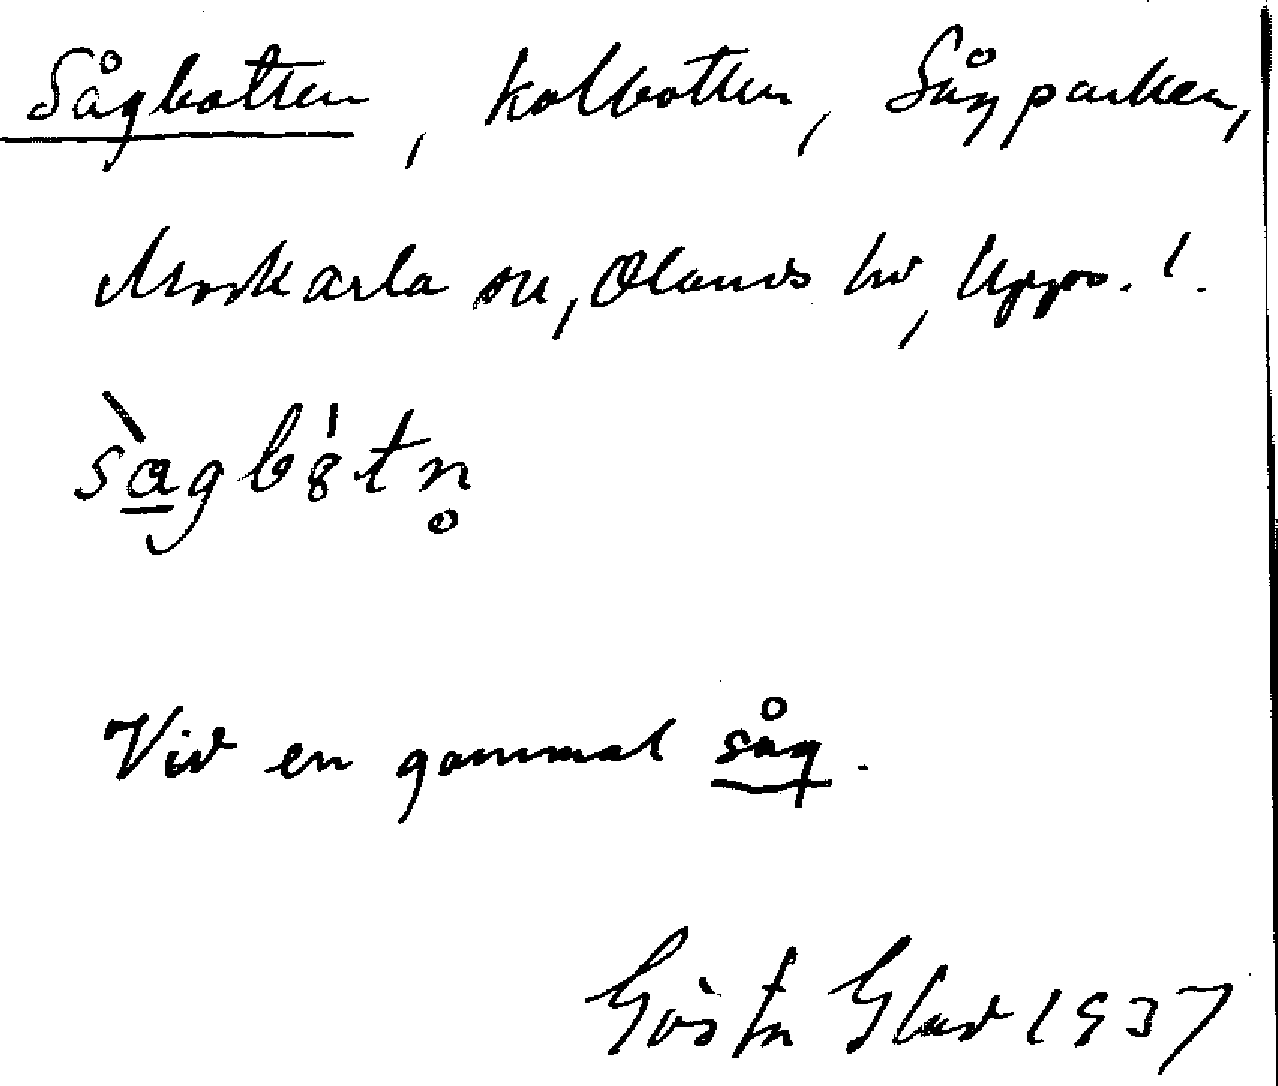 Sågbotten, kolbotten, Sågparken,
Morkarla sn, Olands hd, Upps. l.
sàgb8́tn̥
Vid en gammal såg.
Gösta Glad 1937